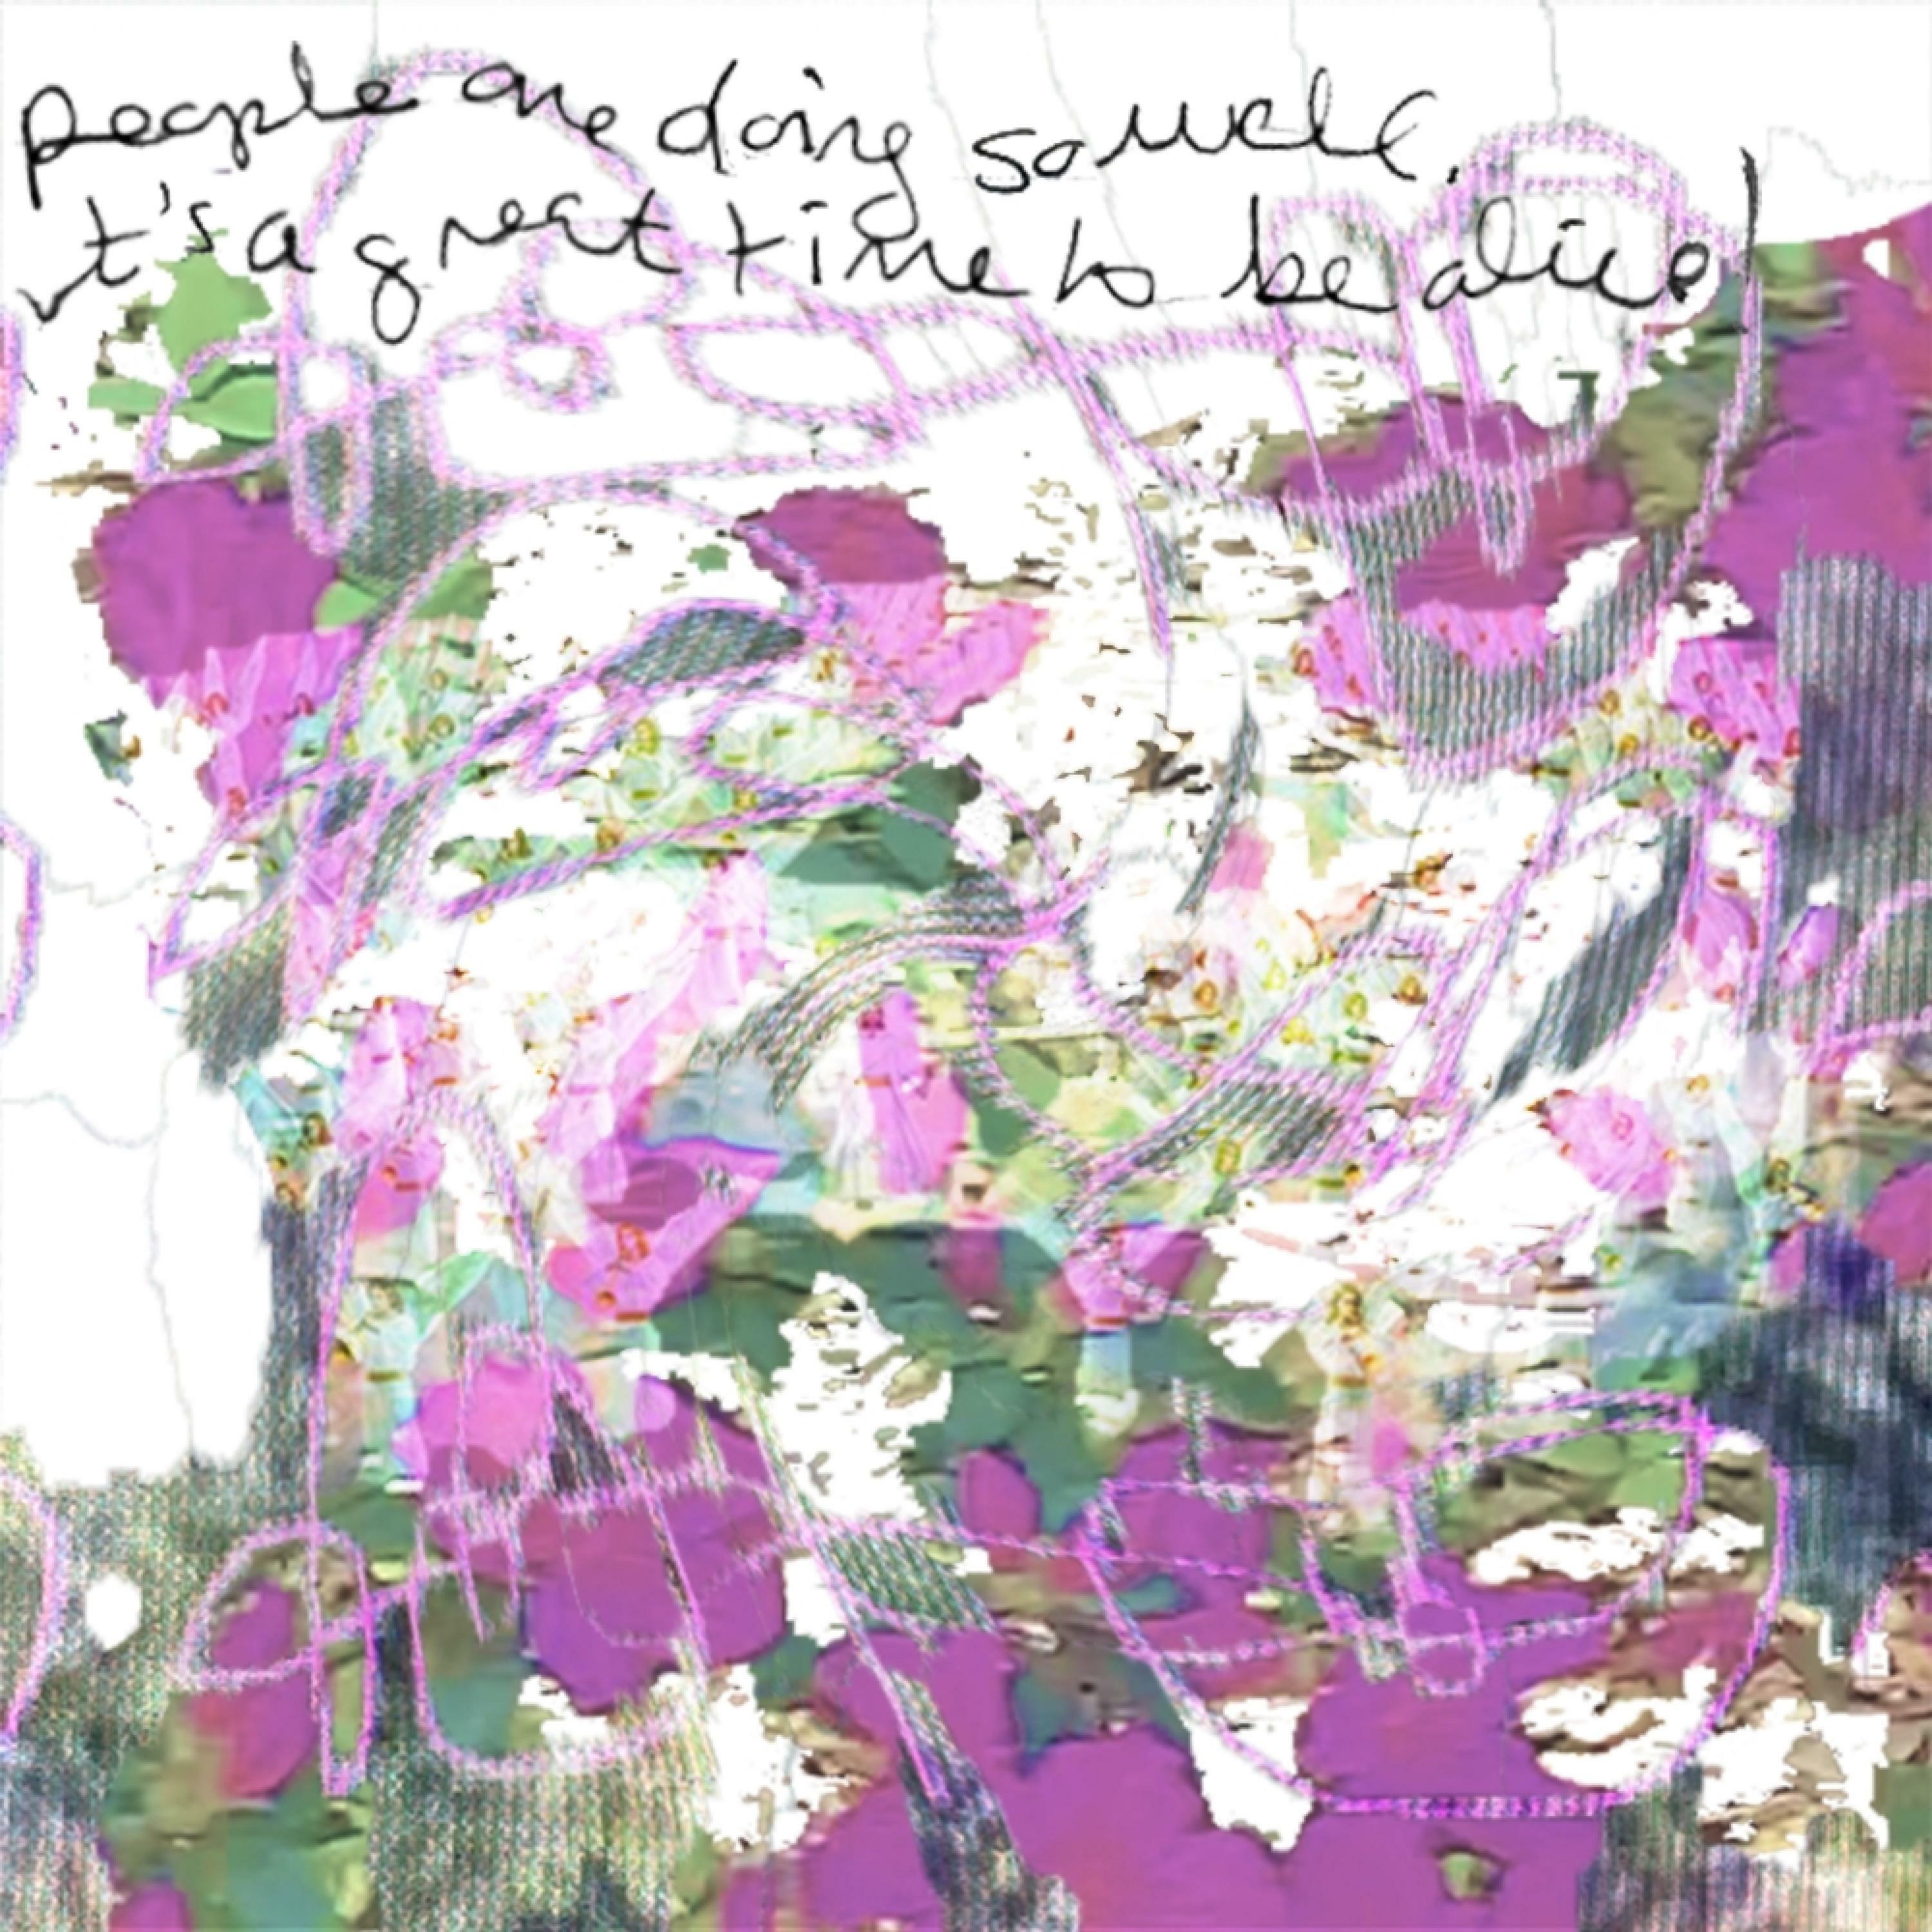 people are doing so well.
it's a great time to be alive!